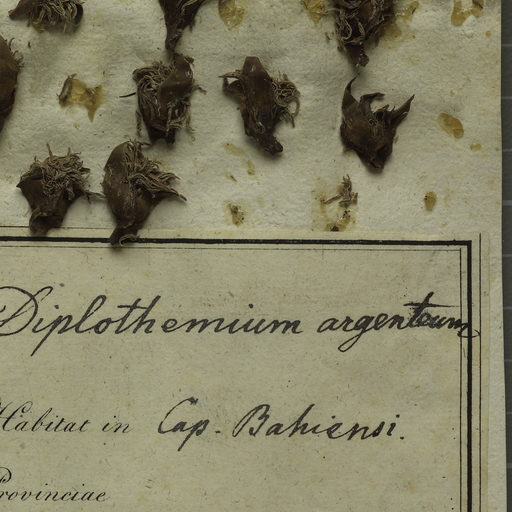 Diplothemium argenteum
Habitat in Cap. Bahiensi.
Provinciae